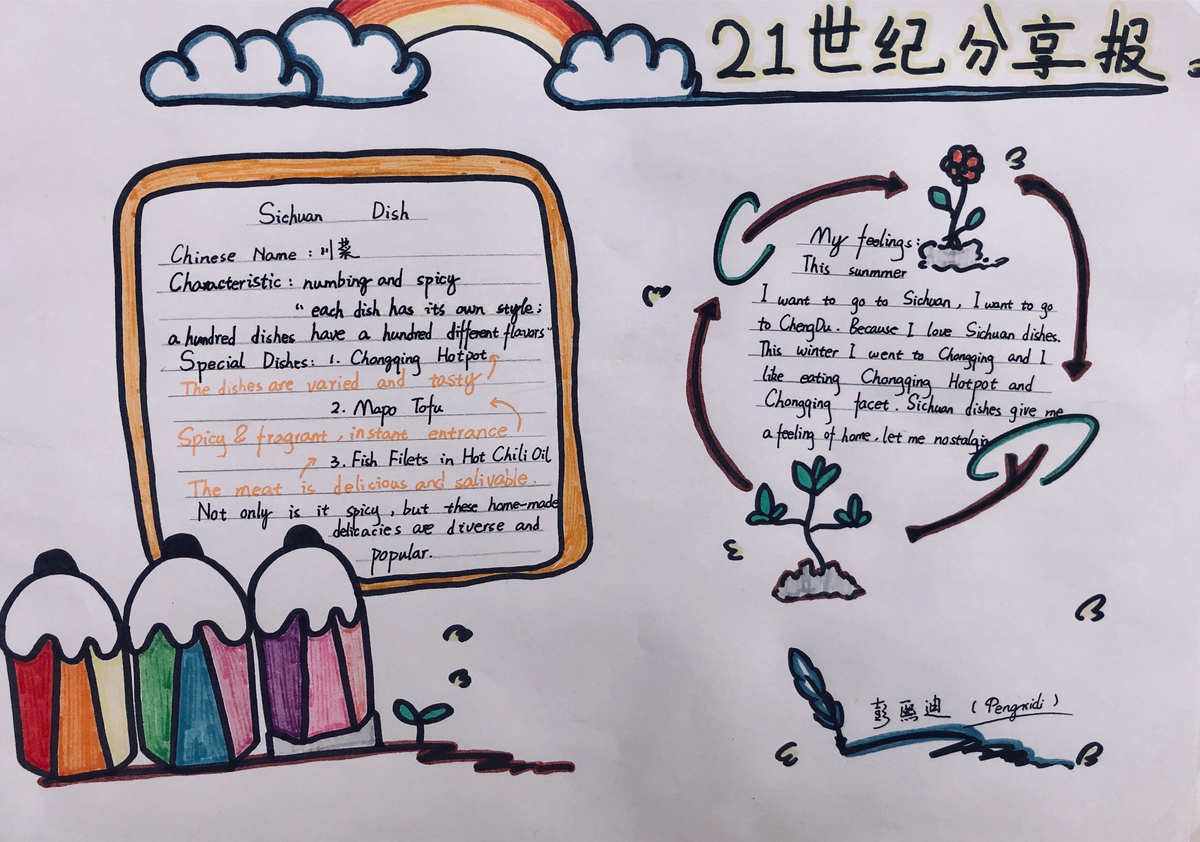 21世纪分享报
Sichuan Dish
Chinese Name : 川菜
Characteristic : numbing and spicy
“ each dish has its own style;
a hundred dishes have a hundred different flavors”
Special Dishes: 1. Chongqing Hotpot
The dishes are varied and tasty
2. Mapo Tofu
Spicy & fragrant , instant entrance
3. Fish Filets in Hot Chili Oil
The meat is delicious and salivable.
Not only is it spicy, but these home-made
delicacies are diverse and
popular.
My feelings:
This sunmmer
I want to go to Sichuan, I want to go
to ChengDu. Because I love Sichuan dishes.
This winter I went to Chongqing and I
like eating Chongqing Hotpot and
Chongqing facet. Sichuan dishes give me
a feeling of home, let me nostalgia
彭熙迪 (Pengxidi)